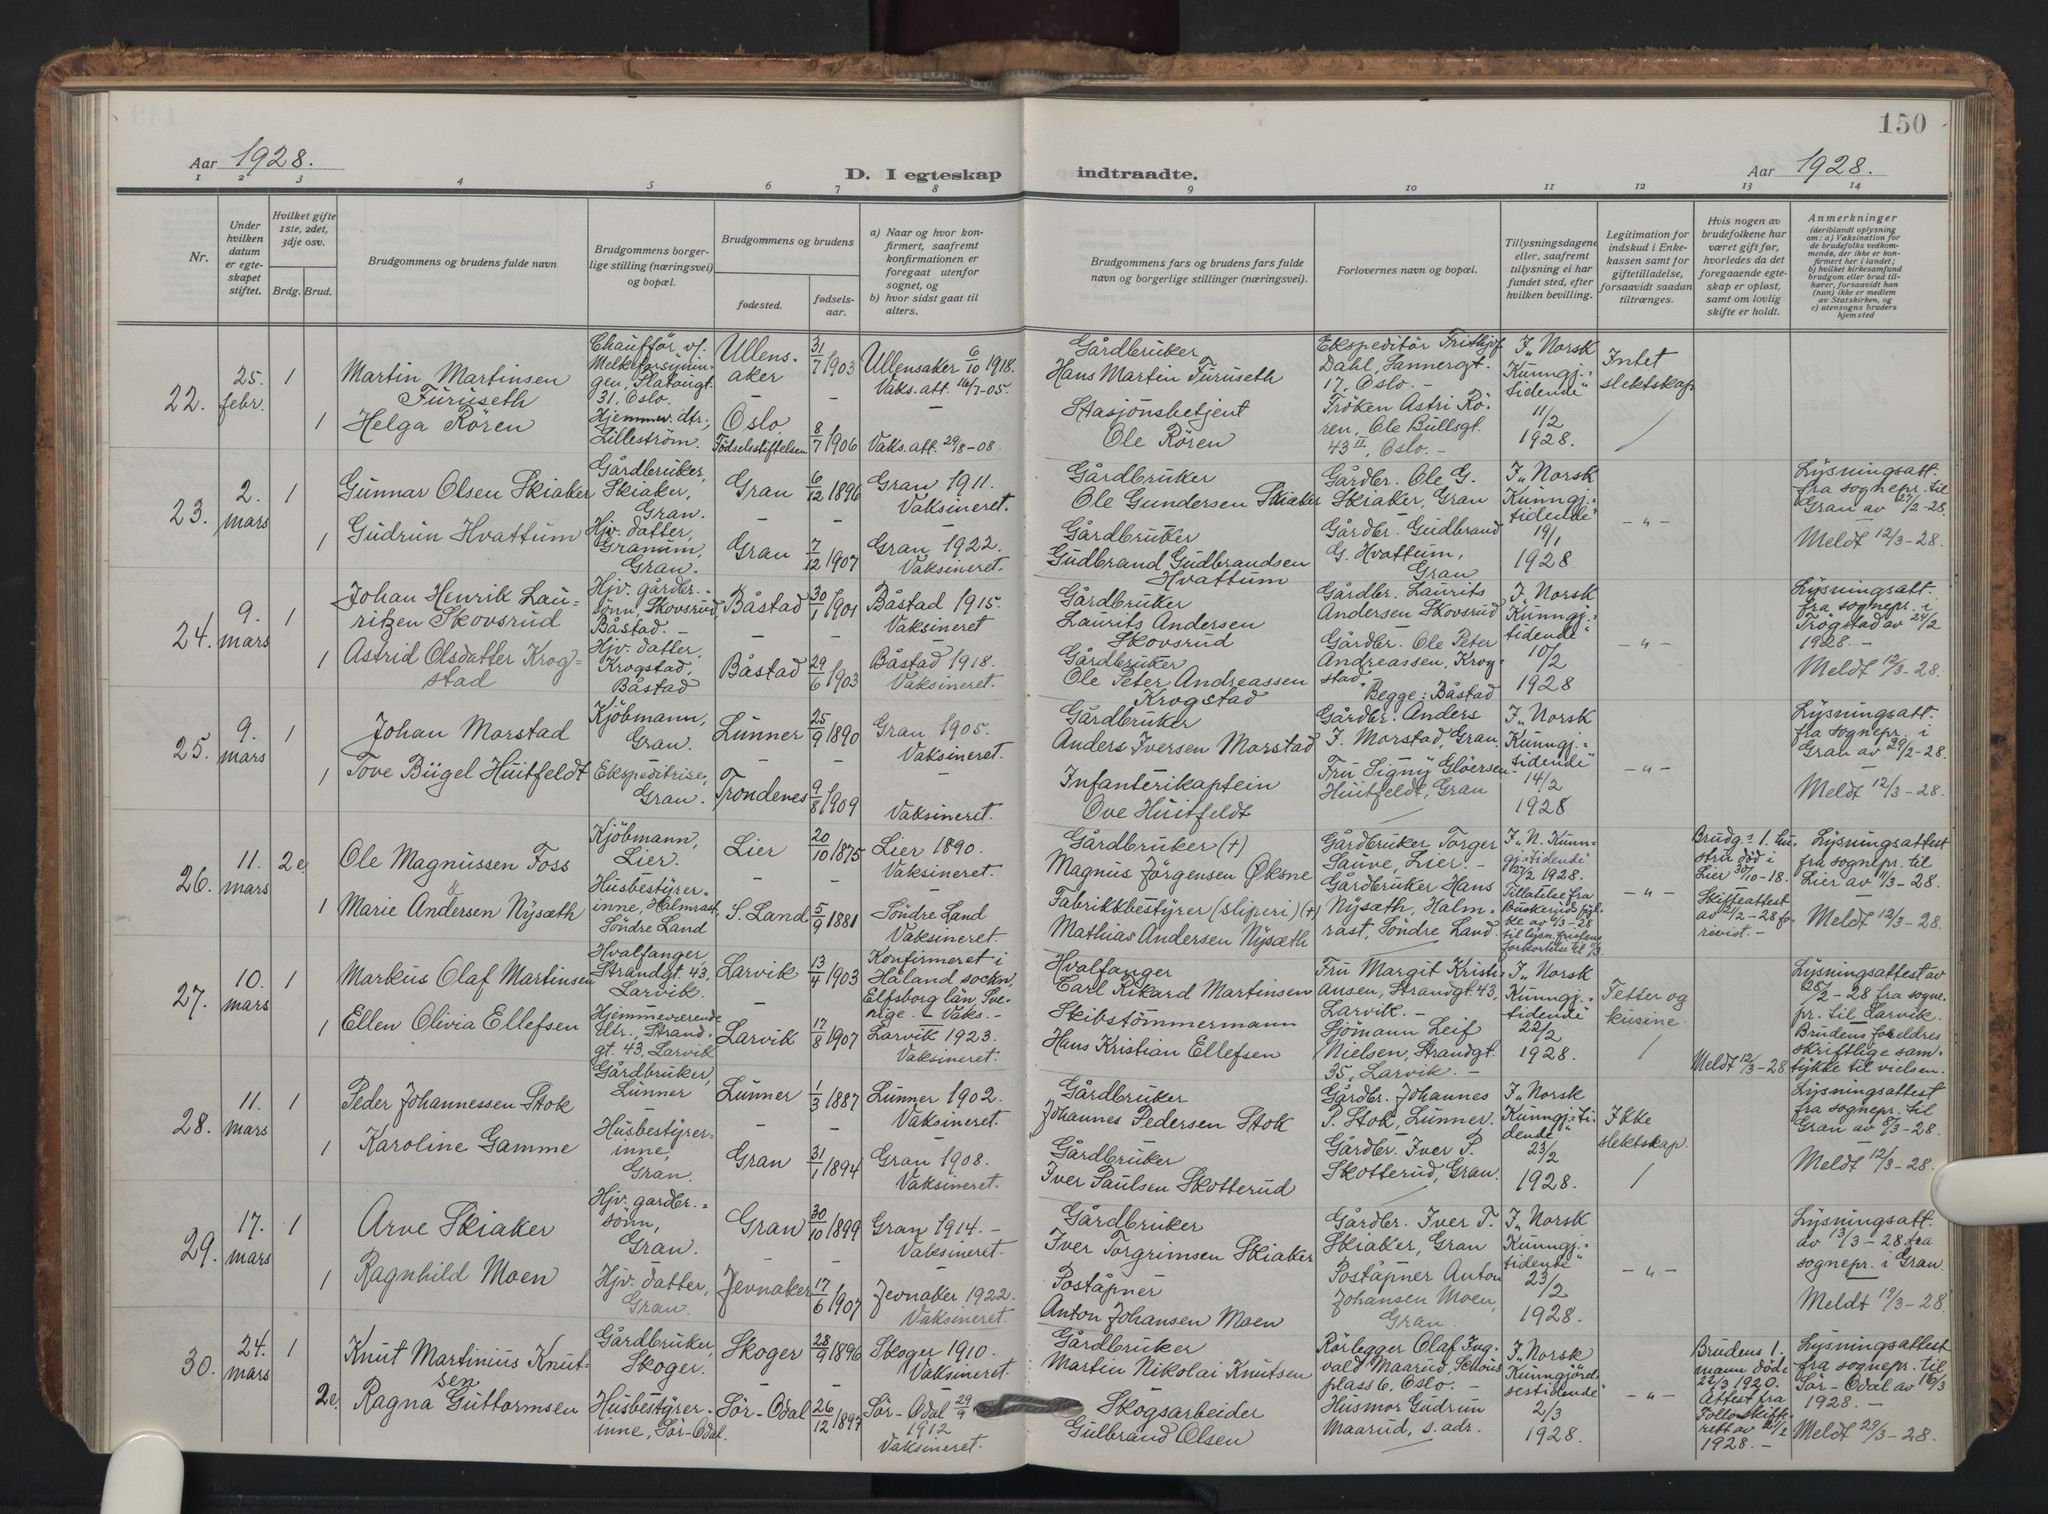 150
Aar 1928.
D. I egteskap indtraadte.
Aar 1928.
1 2 3 4 5 6 7 8 9 10 11 12 13 14
Nr.
Under hvilken datum er egteskapet stiftet.
Hvilket gifte 1ste, 2det, 3dje osv.
Brdg. Brud.
Brudgommens og brudens fulde navn
Brudgommens borgerlige stilling (næringsvei) og bopæl.
Brudgommens og brudens
fødested. fødselsaar.
a) Naar og hvor konfirmert, saafremt konfirmationen er foregaat utenfor sognet, og
b) hvor sidst gaat til alters.
Brudgommens fars og brudens fars fulde navn og borgerlige stillinger (næringsvei).
Forlovernes navn og bopæl.
Tillysningsdagene eller, saafremt tillysning ei har fundet sted, efter hvilken bevilling.
Legitimation for indskud i Enkekassen samt for giftetilladelse, forsaavidt saadan tiltrænges.
Hvis nogen av brudefolkene har været gift før, hvorledes da det foregaaende egteskap er opløst, samt om lovlig skifte er holdt.
Anmerkninger
(deriblandt oplysning om: a) Vaksination for de brudefolks vedkommende, der ikke er konfirmert her i landet; b) hvilket kirkesamfund brudgom eller brud tilhører, forsaavidt han (hun) ikke er medlem av Statskirken, og c) utensogns bruders hjemsted
22. 25. febr. 1 Martin Martinsen Furuseth
Chauffør v/ Melkeforsyningen, Slatougt. 31, Oslo.
Ullensaker 31/7 1903 Ullensaker 6/10 1918. Vaks. att. 16/7-05.
Gårdbruker Hans Martin Furuseth
Ekspeditör Fristhjof Dahl, Sannergt. 17, Oslo. -
I „Norsk Kunngj.-tidende" 11/2 1928.
Intet slektskap
1 Helga Rören
Hjemmev. dtr., Lilleström.
Oslo, Fødselsstiftelsen 8/7 1906 Vaks. att. 29/8-08.
Stasjonsbetjent Ole Rören
Fröken Astri Rören, Ole Bullsgt. 43 II, Oslo. -
23. 2. mars 1 Gunnar Olsen Skiaker
Gårdbruker, Skiaker, Gran.
Gran 6/12 1896 Gran 1911. Vaksineret.
Gårdbruker Ole Gundersen Skiaker
Gårdbr. Ole G. Skiaker, Gran
I „Norsk Kunngj.-tidende" 19/1 1928
- " -
Lysningsatt. fra sognepr. til Gran av 27/2-28. Meldt 12/3-28.
1 Gudrun Hvattum
Hjv. datter, Granum, Gran.
Gran 7/12 1907 Gran 1922. Vaksineret.
Gårdbruker Gudbrand Gudbrandsen Hvattum
Gårdbr. Gudbrand G. Hvattum, Gran
24. 9. mars 1 Johan Henrik Lauritzen Skovsrud
Hjv. gårdbr.-sönn, Skovsrud, Båstad. -
Båstad 30/1 1901 Båstad 1915. Vaksineret
Gårdbruker Laurits Andersen Skovsrud
Gårdbr. Laurits Andersen Skovsrud
I „Norsk Kunngj.-tidende" 10/2 1928
- " -
Lysningsatt. fra sognepr. i Trøgstad av 24/2 1928. - Meldt 12/3-28.
1 Astrid Olsdatter Krogstad
Hjv. datter, Krogstad, Båstad
Båstad 29/6 1903 Båstad 1918. Vaksineret.
Gårdbruker Ole Peter Andreassen Krogstad
Gårdbr. Ole Peter Andreassen, Krogstad, Begge: Båstad
25. 9. mars 1 Johan Morstad
Kjöbmann, Gran.
Lunner 25/9 1890 Gran 1905. Vaksineret.
Gårdbruker Anders Iversen Morstad
Gårdbr. Anders I. Morstad, Gran.
I „Norsk Kunngj.-tidende" 14/2 1928
- " -
Lysningsatt. fra sognepr. i Gran av 29/2-28. Meldt 12/3-28.
1 Tove Bügel Huitfeldt
Ekspeditrise, Gran.
Trondenes 9/8 1909 Vaksineret.
Infanterikaptein Ove Huitfeldt
Fru Signy Glöersen Huitfeldt, Gran
26. 11. mars 2e Ole Magnussen Foss &
Kjöbmann, Lier.
Lier 20/10 1875 Lier 1890. Vaksineret.
Gårdbruker (+) Magnus Jörgensen Øksne
Gårdbruker Torger Sauve, Lier. -
I „N. Kunngj.-tidende" 27/2 1928. Tillatelse fra Buskerud fylke av 6/3-28 til lysn. fristens forkortelse til 11/3
- " -
Brudg.s 1. hustru död i Lier 30/10-18. Skifteattest av 21/2-28 forevist. -
Lysningsattest fra sognepr. til Lier av 11/3-28. Meldt 12/3-28.
1 Marie Andersen Nysæth
Husbestyrerinne, Halmrast, Söndre Land
S. Land 5/9 1881 Söndre Land Vaksineret.
Fabrikkbestyrer (sliperi) (+) Mathias Andersen Nysæth
Gårdbruker Hans Nysæth, Halmrast, Söndre Land.
27. 10. mars 1 Markus Olaf Martinsen
Hvalfanger, Strandgt. 43, Larvik.
Larvik 13/4 1903 Konfirmeret i Håland sockn, Elfsborg län, Sverige. - Vaks. -
Hvalfanger Carl Rikard Martinsen
Fru Margit Kristiansen, Strandgt. 43, Larvik. -
I „Norsk Kunngj.-tidende" 22/2 1928.
Fetter og kusine.
Meldt 12/3-28
Lysningsattest av 28/2-28 fra sognepr. til Larvik. Brudens foreldres skriftlige samtykke til vielsen.
1 Ellen Olivia Ellefsen
Hjemmeværende dtr., Strandgt. 43, Larvik
Larvik 17/8 1907 Larvik 1923. Vaksineret.
Skibstömmermann Hans Kristian Ellefsen
Sjömann Leif Nielsen, Strandgt. 35, Larvik. -
28. 11. mars 1 Peder Johannessen Stok
Gårdbruker, Lunner
Lunner 1/3 1887 Lunner 1902. Vaksineret.
Gårdbruker Johannes Pedersen Stok
Gårdbr. Johannes P. Stok, Lunner.
I „Norsk Kunngj.-tidende" 23/2 1928.
Ikke slektskap.
Lysningsattest fra sognepr. til Gran av 8/3-28. Meldt 12/3-28.
1 Karoline Gamme
Husbestyrerinne, Gran.
Gran 31/1 1894 Gran 1908. Vaksineret.
Gårdbruker Iver Paulsen Skotterud
Gårdbr. Iver P. Skotterud, Gran.
29. 17. mars 1 Arve Skiaker
Hjv. gardbr.-sönn, Gran.
Gran 30/10 1899 Gran 1914. - Vaksineret.
Gårdbruker Iver Torgrimsen Skiaker
Gårdbr. Iver T. Skiaker, Gran
I „Norsk Kunngj.-tidende" 23/2 1928.
- " -
Lysningsatt. av 13/3-28 fra sognepr. i Gran. Meldt 19/3-28.
1 Ragnhild Moen
Hjv. datter, Gran.
Jevnaker 17/6 1907 Jevnaker 1922. Vaksineret.
Poståpner Anton Johansen Moen
Poståpner Anton Johansen Moen, Gran.
30. 24. mars 1 Knut Martinius Knutsen
Gårdbruker, Skoger.
Skoger 28/9 1896 Skoger 1910. Vaksineret.
Gårdbruker Martin Nikolai Knutsen
Rörlegger Olaf Ingvald Maarud, Schous plass 6, Oslo. -
I „Norsk Kunngjördsestidende" 2/3 1928.
- " -
Brudens 1. mann döde 22/3 1920. Attest fra Follo Skifterett av 21/2 1928. -
Lysningsattest fra sognepr. til Sör-Odal av 16/3 1928. - Meldt 29/3-28.
2e. Ragna Guttormsen
Husbestyrerinne, Sör-Odal.
Sör-Odal 26/12 1897 Sör-Odal 29/9 1912 Vaksineret.
Skogsarbeider Gulbrand Olsen
Husmor Gudrun Maarud, s. adr.